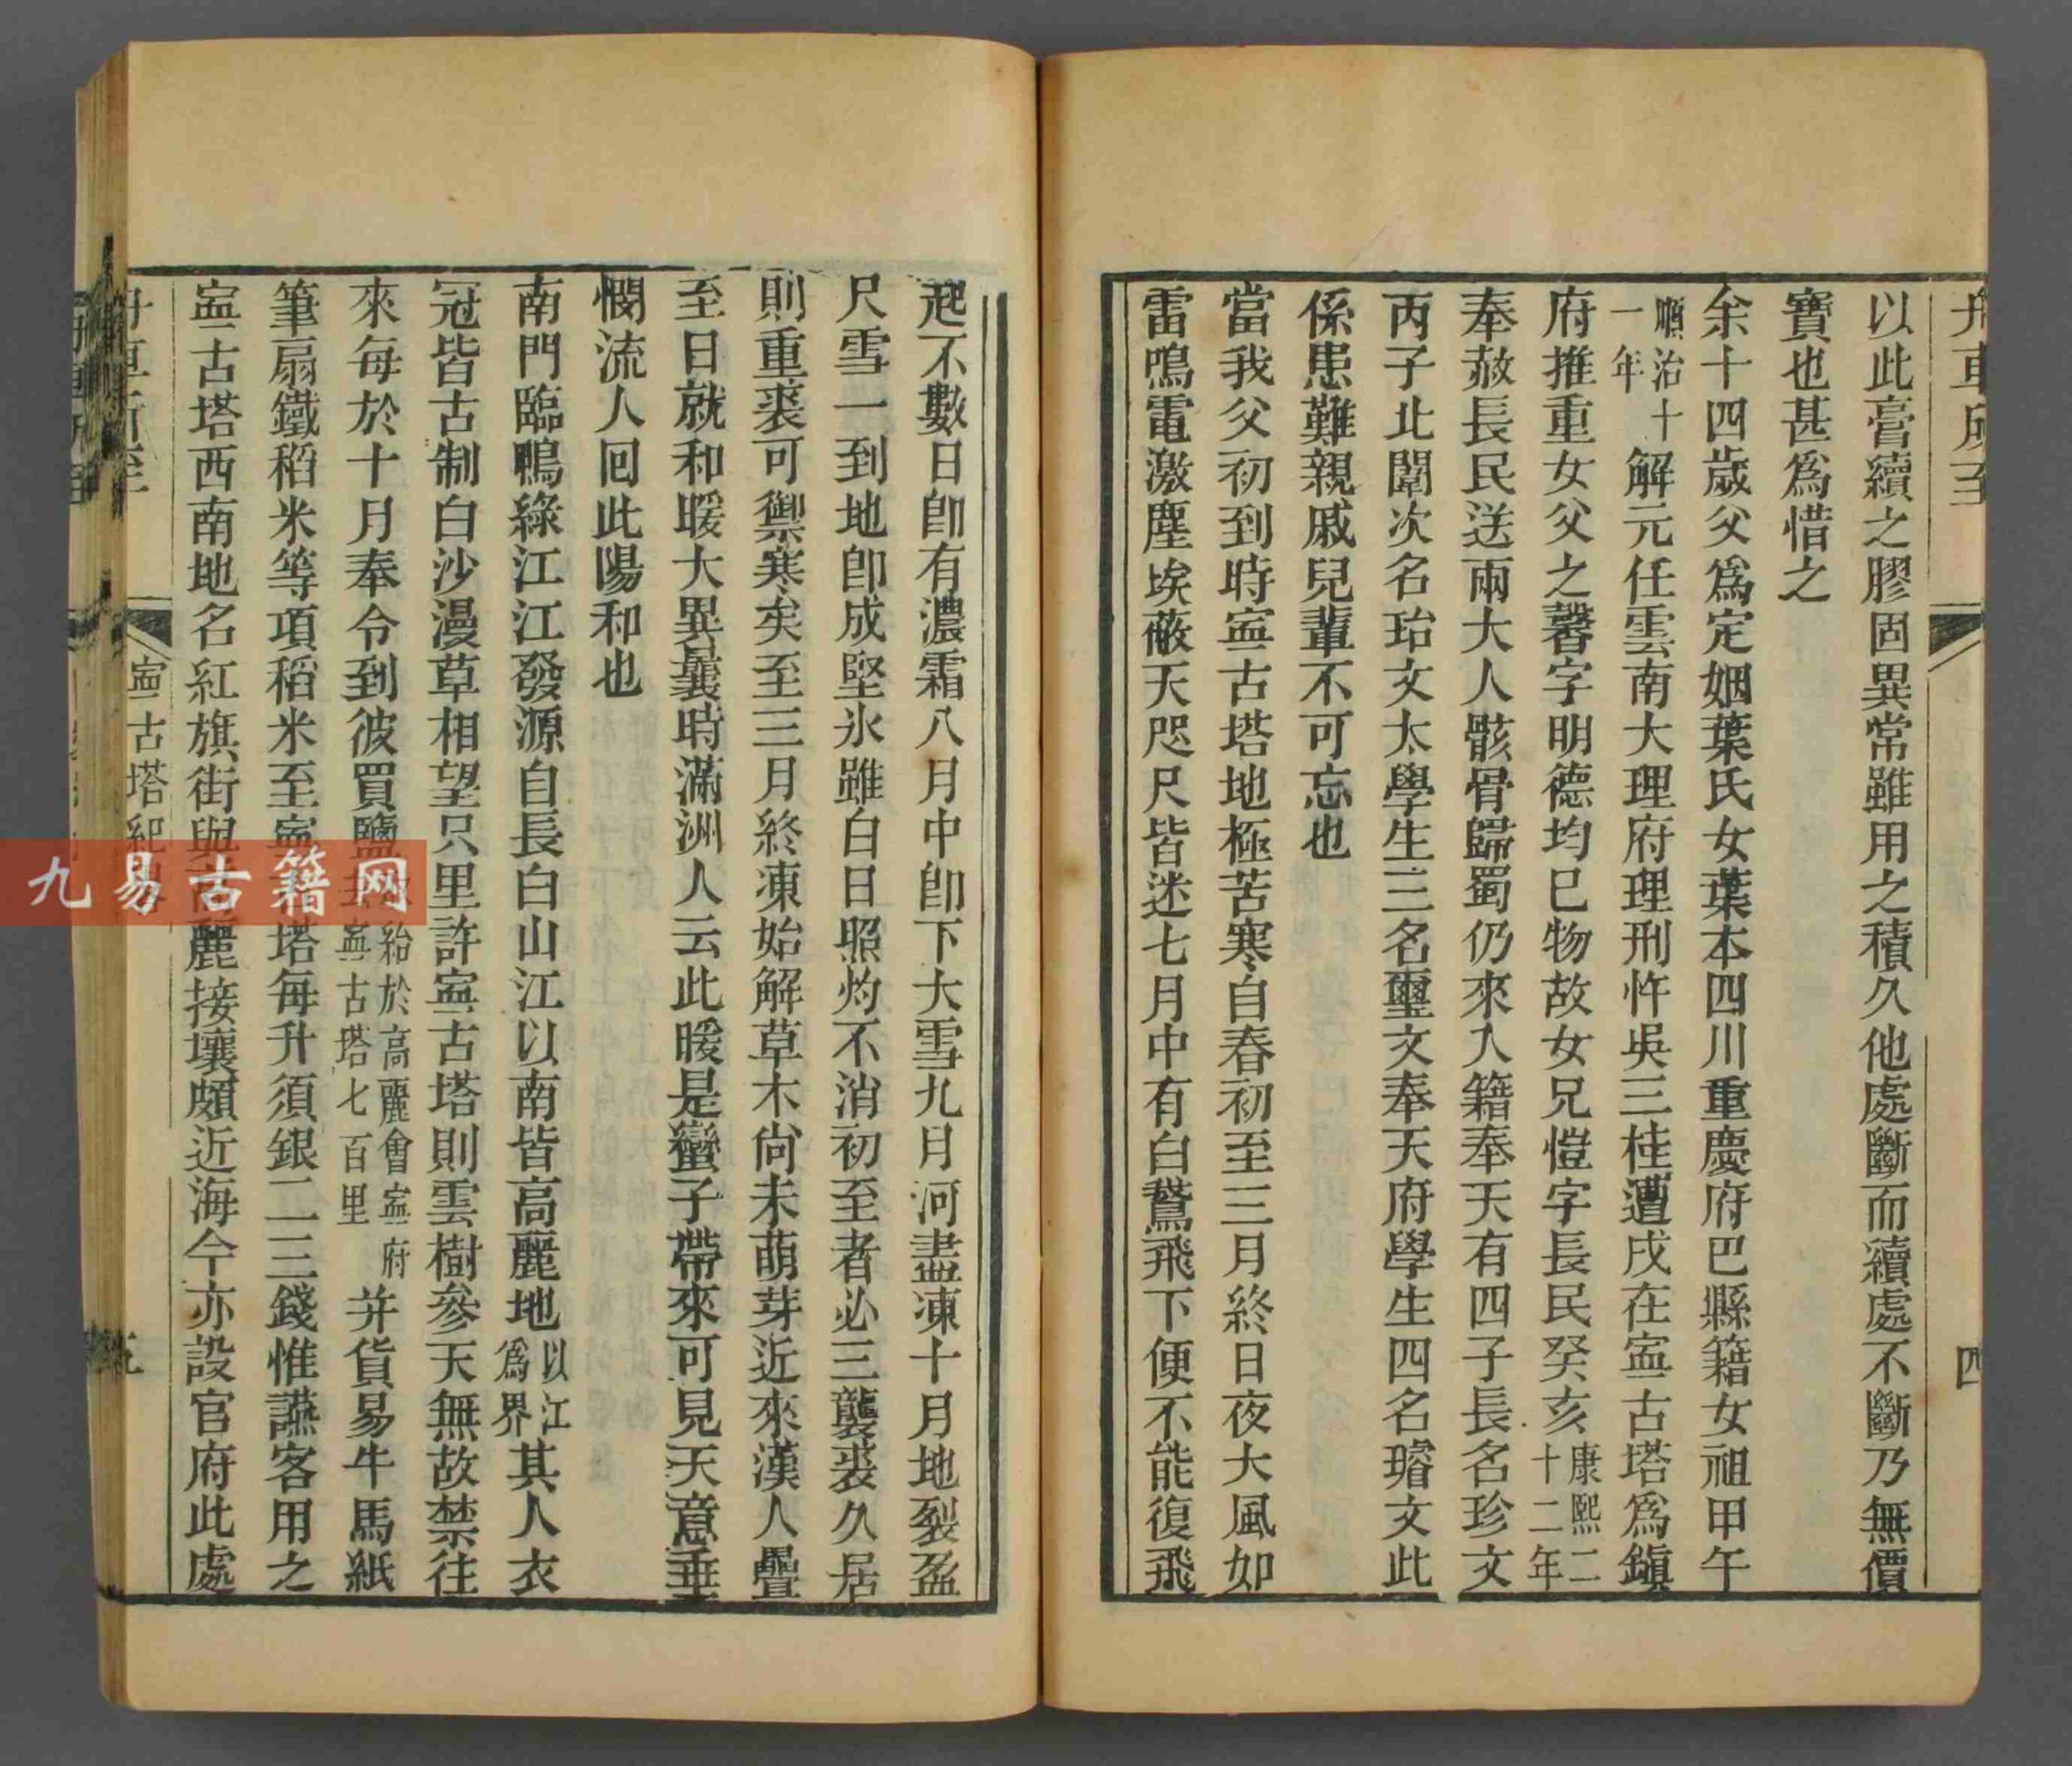 舟車所至
四
以此膏續之膠固異常雖用之積久他處斷而續處不斷乃無價
寶也甚爲惜之
余十四歲父爲定姻葉氏女葉本四川重慶府巴縣籍女祖甲午
順治十一年解元任雲南大理府理刑忤吳三桂遭戍在寧古塔爲鎮
府推重女父之馨字明德均已物故女兄愷字長民癸亥康熙二十二年
奉赦長民送兩大人骸骨歸蜀仍來入籍奉天有四子長名珍文
丙子北闈次名珆文太學生三名璽文奉天府學生四名璿文此
係患難親戚兒輩不可忘也
當我父初到時寧古塔地極苦寒自春初至三月終日夜大風如
雷鳴電激塵埃蔽天咫尺皆迷七月中有白鵞飛下便不能復飛
起不數日卽有濃霜八月中卽下大雪九月河盡凍十月地裂盈
尺雪一到地卽成堅氷雖白日照灼不消初至者必三襲裘久居
則重裘可禦寒矣至三月終凍始解草木尚未萌芽近來漢人疊
至日就和暖大異曩時滿洲人云此暖是蠻子帶來可見天意垂
憫流人回此陽和也
南門臨鴨綠江江發源自長白山江以南皆高麗地以江爲界其人衣
冠皆古制白沙漫草相望只里許寧古塔則雲樹參天無故禁往
來每於十月奉令到彼買鹽給於高麗會寧府去寧古塔七百里并貨易牛馬紙
筆扇鐵稻米等項稻米至寧古塔每升須銀二三錢惟讌客用之
寧古塔西南地名紅旗街與高麗接壤頗近海今亦設官府此處
舟車所至
寧古塔紀畧
五
九易古籍网